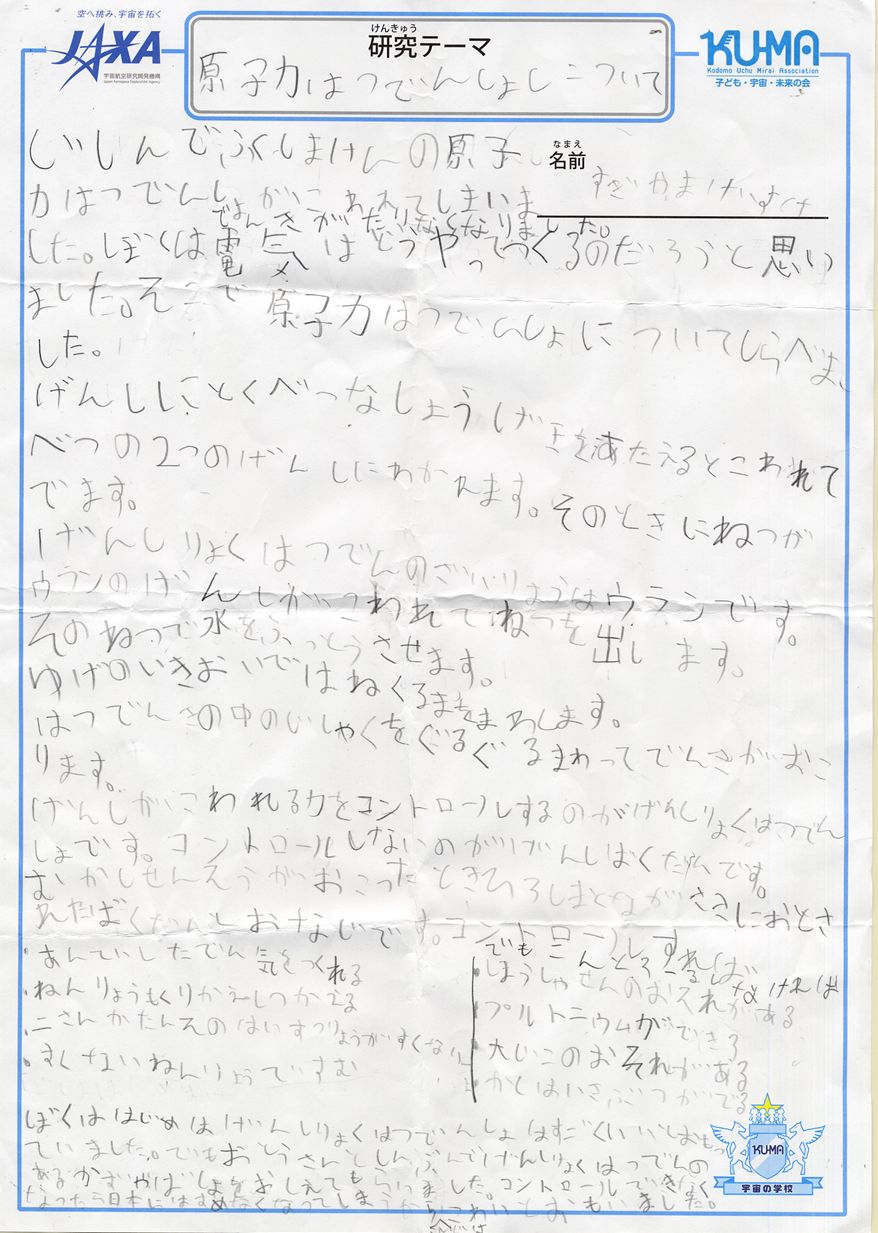 空へ挑み、宇宙を拓く
JAXA
宇宙航空研究開発機構
Japan Aerospace Exploration Agency
けんきゅう
研究テーマ
原子力はつでんしょについて
KU-MA
Kodomo Uchu Mirai Association
子ども・宇宙・未来の会
なまえ
名前
すぎやまけいすけ
じしんでふくしまけんの原子
力はつでんしょがこわれてしまいま
でんきがたりなくなりました。
した。ぼくは電気はどうやってつくるのだろうと思い
ました。そこで原子力はつでんしょについてしらべま
した。
げんしにとくべつなしょうげきをあたえるとこわれて
べつの2つのげんしにわかれます。そのときにねつが
でます。
げんしりょくはつでんのざいりょうはウランです。
ウランのげんしがこわれてねつを出します。
そのねつで水をふっとうさせます。
ゆげのいきおいではねくるまをまわします。
はつでんきの中のじしゃくをぐるぐるまわってでんきがおこ
ります。
げんしがこわれる力をコントロールするのがげんしりょくはつでん
しょです。コントロールしないのがげんしばくだんです。
むかしせんそうがおこったときひろしまとながさきにおとさ
れたばくだんとおなじです。コントロールすれば
・あんていしたでん気をつくれる
・ねんりょうもくりかえしつかえる
・二さんかたんそのはいすつりょうがすくない
・すくないねんりょうですむ
でもこんとろーるし
なければ
・ほうしゃせんのおそれがある
・プルトニウムができる
・大じこのおそれがある
・かくはいきぶつがでる
ぼくははじめはげんしりょくはつでんしょはすごくいいとおもっ
ていました。でもおとうさんとしんぶんでげんしりょくはつでんの
あるかずやばしょをおしえてもらいました。コントロールできなく
なったら日本にはすめなくなってしまうからこわいとおもいました。
KU-MA
宇宙の学校